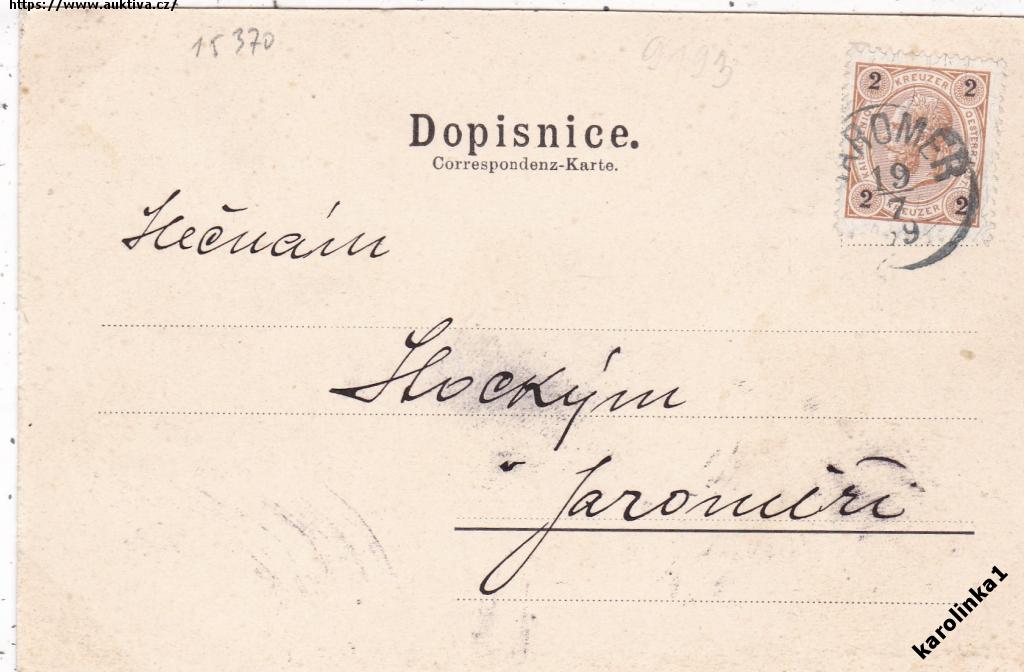 https://www.auktiva.cz/
15370
9193
Dopisnice.
Correspondenz-Karte.
2 KREUZER 2
JAROMER
19
7
99
2 KREUZER 2
Slečnám
Stockým
v Jaroměři
karolinka1